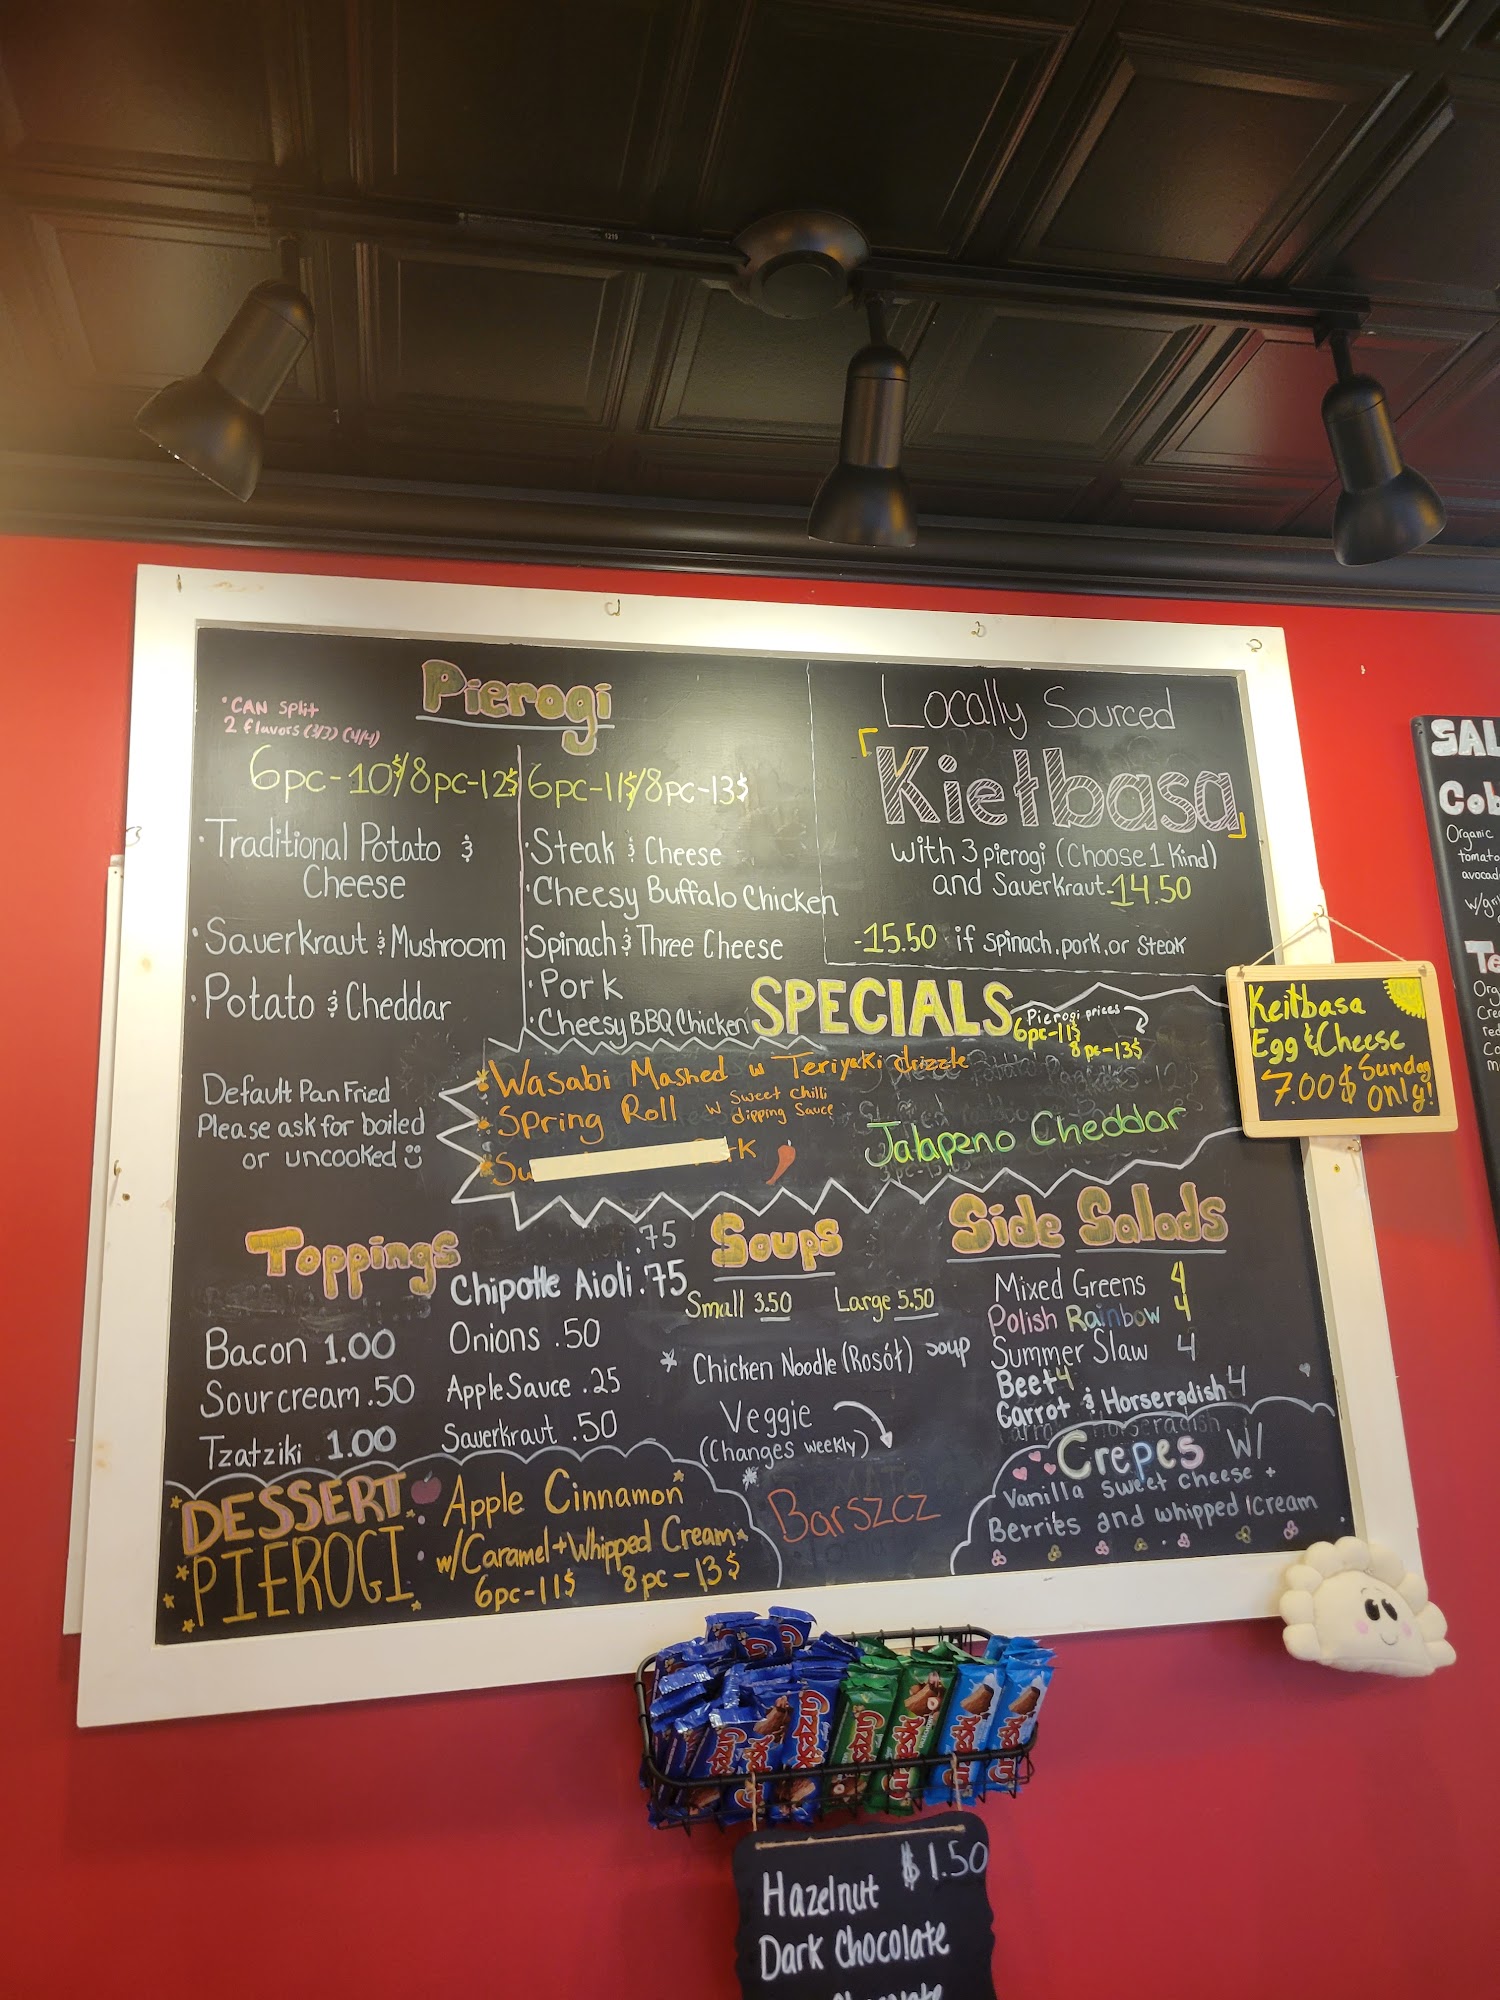 Pierogi
• CAN Split
2 flavors (3/3) (4/4)
6pc-10$/8pc-12$
• Traditional Potato &
Cheese
• Sauerkraut & Mushroom
• Potato & Cheddar
6pc-11$/8pc-13$
• Steak & Cheese
• Cheesy Buffalo Chicken
Spinach & Three Cheese
• Pork
• Cheesy BBQ Chicken
Default Pan Fried
Please ask for boiled
or uncooked
Locally Sourced
Kiełbasa
with 3 pierogi (Choose 1 Kind)
and Sauerkraut-14.50
-15.50 if spinach, pork, or steak
SPECIALS
Pierogi prices
6pc-11$
8pc-13$
Wasabi Mashed w Teriyaki drizzle
Spring Roll w Sweet Chilli
dipping Sauce
Jalapeno Cheddar
Keiłbasa
Egg & Cheese
7.00$ Sunday
only!
Toppings
.75
Chipotle Aioli .75
Bacon 1.00
Onions .50
Sour cream .50
Apple Sauce .25
Tzatziki 1.00
Sauerkraut .50
Soups
Small 3.50 Large 5.50
* Chicken Noodle (Rosół) soup
Veggie
(Changes weekly)
* Barszcz
Side Salads
Mixed Greens 4
Polish Rainbow 4
Summer Slaw 4
Beet 4
Carrot & Horseradish 4
DESSERT
PIEROGI
Apple Cinnamon
w/Caramel + Whipped Cream
6pc-11$ 8pc-13$
Crepes W/
Vanilla sweet cheese +
Berries and whipped cream
SAL
Cob
Organic
tomato
avocad
w/gri
Te
Org
Cre
red
Grześki
Hazelnut $1.50
Dark Chocolate